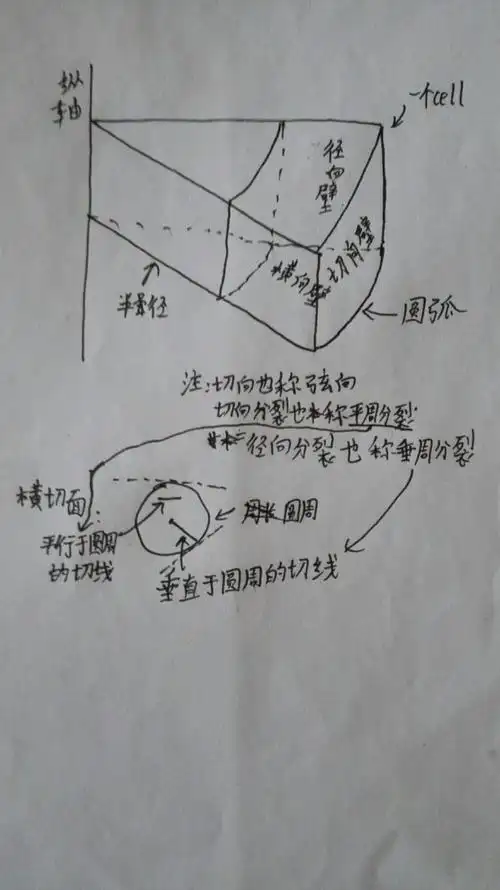 纵轴
一个cell
径向壁
切向壁
横向壁
半径
圆弧
注:切向也称弦向
切向分裂也称平周分裂
径向分裂也称垂周分裂
横切面:
平行于圆周的切线
圆周
垂直于圆周的切线